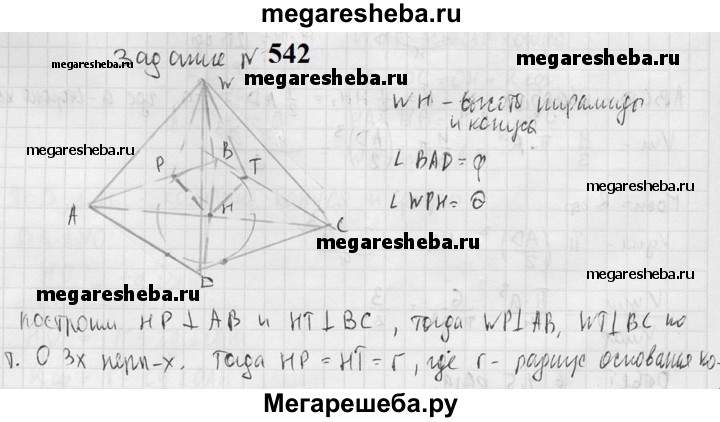 megaresheba.ru
Задание № 542
megaresheba.ru
megaresheba.ru
W
WH - высота пирамиды
и конуса.
megaresheba.ru
P B T
∠ BAD = φ
∠ WPH = θ
megaresheba.ru
A H C
megaresheba.ru
megaresheba.ru
D
megaresheba.ru
построим HP ⊥ AB и HT ⊥ BC, тогда WP⊥AB, WT⊥BC по
т. О 3х перп-х. Тогда HP = HT = r, где r - радиус основания ко-
Мегарешеба.ру